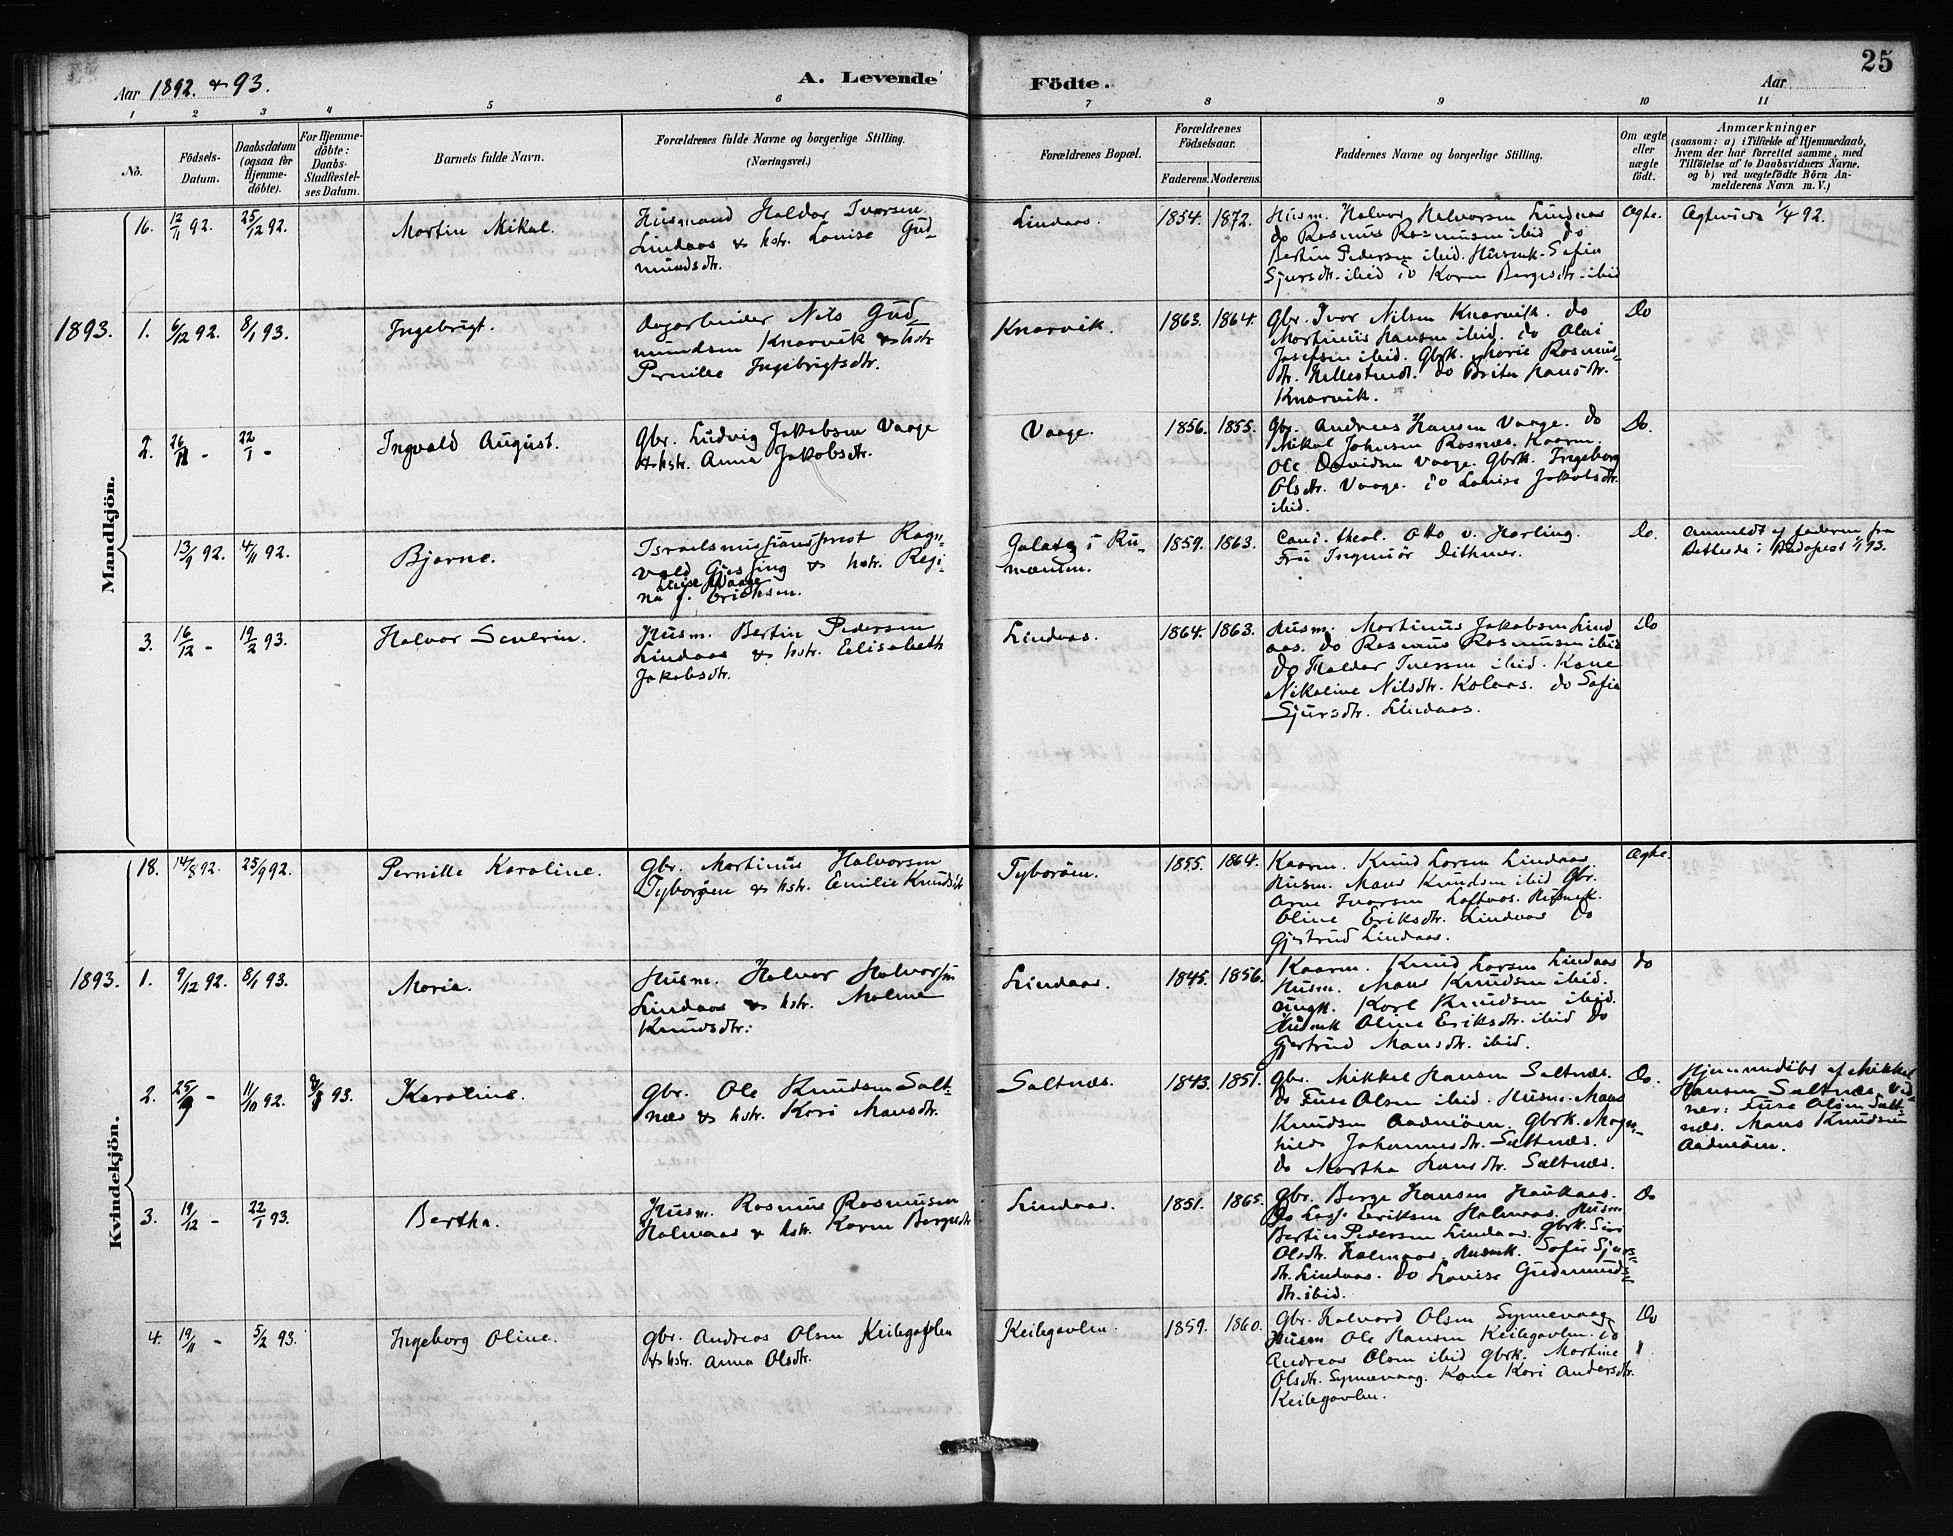 25
Aar 1892. & 93.
A. Levende
Födte.
Aar
1 2 3 4 5 6 7 8 9 10 11
No.
Födsels-
Datum.
Daabsdatum
(ogsaa for
Hjemme-
döbte).
For Hjemme-
döbte:
Daabs-
Stadfestel-
ses Datum.
Barnets fulde Navn.
Forældrenes fulde Navne og borgerlige Stilling.
(Næringsvei.)
Forældrenes Bopæl.
Forældrenes
Födselsaar.
Faderens.
Moderens.
Faddernes Navne og borgerlige Stilling.
Om ægte
eller
uægte
födt.
Anmærkninger
(saasom: a) i Tilfælde af Hjemmedaab,
hvem der har forrettet samme, med
Tilföielse af to Daabsvidners Navne.
og b) ved uægtefödte Börn An-
melderens Navn m. V.)
Mandkjön.
16. 12/11 92. 25/12 92.
Martin Mikal.
Husmand Haldor Iversen
Lindaas & hstr. Louise Gud-
mundsdtr.
Lindaas.
1854. 1872.
Husm. Halvor Halvorsen Lindaas
do Rasmus Rasmusen ibid do
Bertin Pedersen ibid. Husmk. Sofia
Sjursdtr. ibid do Karen Bergesdtr. ibid
Ægte.
Ægteviede 1/4 92.
1893.
1. 6/12 92. 8/1 93.
Ingebrigt.
Dagarbeider Nils Gud-
mundsen Knarvik & hstr
Pernille Ingebrigtsdtr.
Knarvik.
1863. 1864.
Gbr. Ivar Nilsen Knarvik. do
Martinus Hansen ibid. do Olai
Josefsen ibid. Gbrk. Marie Rasmus-
dtr. Hellestvedt. do Brita Hansdtr.
Knarvik.
Do
2. 26/11 - 22/1 -
Ingvald August.
Gbr. Ludvig Jakobsen Vaage
& hstr. Anna Jakobsdtr.
Vaage.
1856. 1855.
Gbr. Andreas Hansen Vaage. do
Mikal Johnsen Rosnæs. Kaarm.
Ole Davidsen Vaage. Gbrk. Ingeborg
Olsdtr. Vaage. do Lovise Jakobsdtr.
ibid.
Do.
13/9 92. 4/11 92.
Bjarne.
Israelsmissionsprest Ragn-
vald Gjessing & hstr. Regi-
Luise Waage
na f. Erichsen.
Galatz i Ru-
mænien.
1859. 1863.
Cand. theol. Otto v. Harling.
Fru Ingmör Dithmer.
Do.
Anmeldt af faderen fra
Bethesde i Budapest 1/1 93.
3. 16/12 - 19/2 93.
Halvor Severin.
Husm. Bertin Pedersen
Lindaas & hstr. Elisabeth
Jakobsdtr.
Lindaas.
1864. 1863.
Husm. Martinus Jakobsen Lind
aas. do Rasmus Rasmusen ibid
do Haldor Iversen ibid. Kone
Nikoline Nilsdtr. Kolaas. do Sofia
Sjursdtr. Lindaas.
Do
Kvindekjön.
18. 14/8 92. 25/9 92.
Pernille Karoline.
Gbr. Martinus Halvorsen
Tyborøen & hstr. Emilie Knudsdtr
Tyborøen.
1855. 1864.
Kaarm. Knud Larsen Lindaas
Husm. Mans Knudsen ibid Gbr.
Arne Ivarsen Loftaas. Husmk.
Oline Eriksdtr. Lindaas do
Gjertrud Lindaas.
Ægte.
1893.
1. 9/12 92. 8/1 93.
Maria.
Husm. Halvor Halvorsen
Lindaas & hstr. Malene
Knudsdtr:
Lindaas.
1845. 1856.
Kaarm. Knud Larsen Lindaas
Husm. Mans Knudsen ibid.
Ungk. Karl Knudsen ibid.
Husmk Oline Eriksdtr. ibid do
Gjertrud Mansdtr. ibid.
do
2. 25/9 - 11/10 92. 8/1 93.
Karoline.
Gbr. Ole Knudsen Salt-
næs & hstr. Kari Mansdtr.
Saltnæs.
1843. 1851.
Gbr. Mikkel Hansen Saltnæs.
do Fuse Olsen ibid. Husm. Mans
Knudsen Aadneöen. Gbrk. Magn-
hilde Johannesdtr. Saltnæs.
do Martha Hansdtr. Saltnæs.
Do.
Hjemmedöbt af Mikkel
Hansen Saltnæs. Vid-
ner: Fuse Olsen Salt-
næs. Mans Knudsen
Aadneöen.
3. 19/12 - 22/1 93.
Bertha.
Husm. Rasmus Rasmusen
Halmaas & hstr. Karen Bergesdtr
Lindaas.
1851. 1865.
Gbr. Berge Hansen Haukaas.
do Lasse Eriksen Halmaas. Husm
Bertin Pedersen Lindaas. Gbrk. Siri
Olsdtr. Halmaas. Husmk. Sofie Sjurs-
dtr. Lindaas. do Lovise Gudmunds-
dtr. ibid.
Do
4. 19/11 - 5/2 93.
Ingeborg Oline.
Gbr. Andreas Olsen Keilegavlen
& hstr. Anna Olsdtr.
Keilegavlen.
1859. 1860.
Gbr. Halvard Olsen Synnevaag
Husm Ole Hansen Keilegavlen. do
Andreas Olsen ibid Gbrk. Martine
Olsdtr. Synnevaag. Kone Kari Andersdtr.
Keilegavlen.
Do